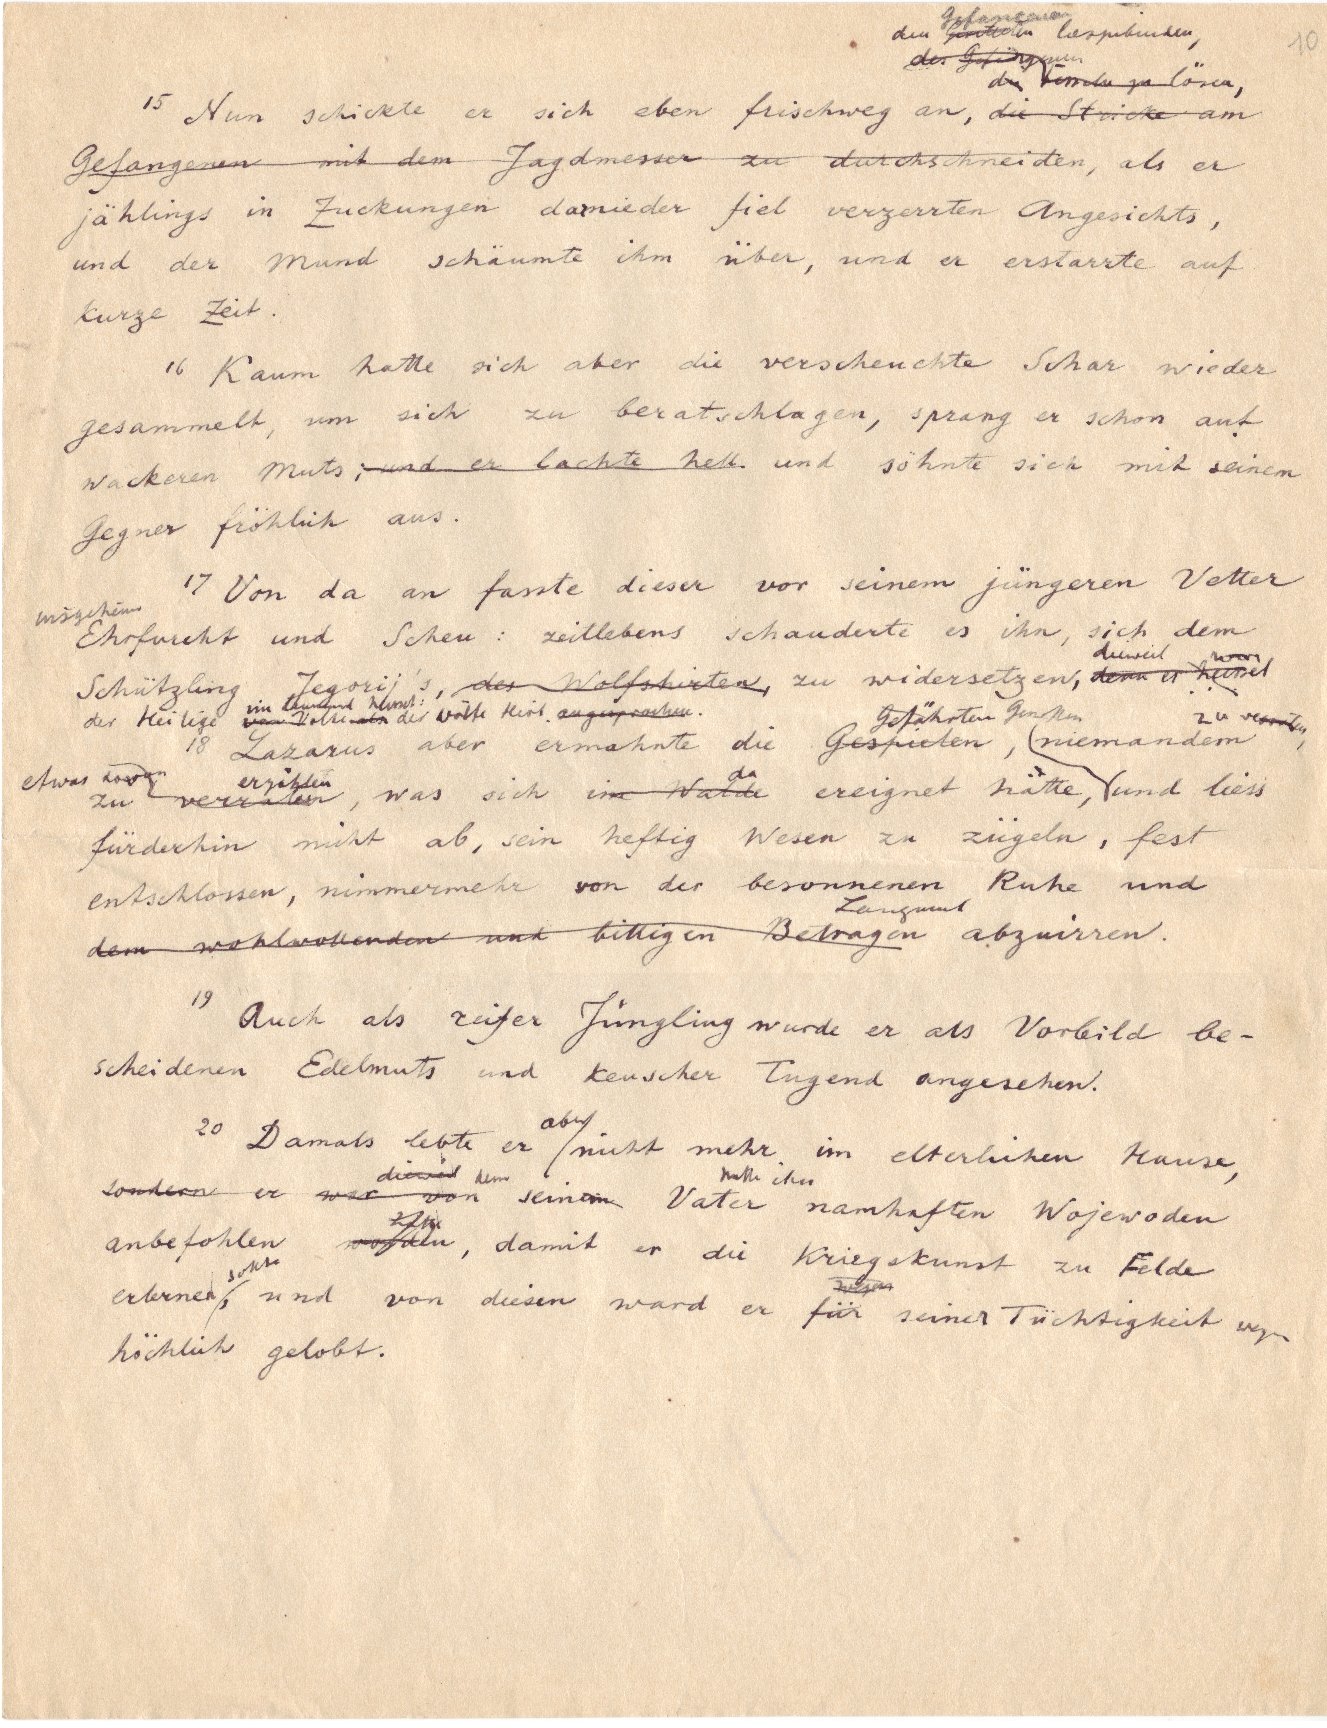 Gefangenen
den Gefesselten loszubinden,
10
des Gefangenen
die Fesseln zu lösen,
15 Nun schickte er sich eben frischweg an, die Stricke am
Gefangenen mit dem Jagdmesser zu durchschneiden, als er
jählings in Zuckungen darnieder fiel verzerrten Angesichts,
und der Mund schäumte ihm über, und er erstarrte auf
kurze Zeit.
16 Kaum hatte sich aber die verscheuchte Schar wieder
gesammelt, um sich zu beratschlagen, sprang er schon auf
wackeren Muts; und er lachte hell. und söhnte sich mit seinem
Gegner fröhlich aus.
17 Von da an fasste dieser vor seinem jüngeren Vetter
insgeheim
Ehrfurcht und Scheu: zeitlebens schauderte es ihn, sich dem
dieweil
Schützling Jegorij's, des Wolfshirten, zu widersetzen, denn er heisset
der Heilige vom Volke als der Wölfe Hirt angesprochen.
Gefährten Genossen zu verraten,
18 Lazarus aber ermahnte die Gespielen, niemandem
etwas davon erzählen da
zu verraten, was sich im Walde ereignet hätte, und liess
fürderhin nicht ab, sein heftig Wesen zu zügeln, fest
entschlossen, nimmermehr von der besonnenen Ruhe und
Langmut
dem wohlwollenden und billigen Betragen abzuirren.
19 Auch als reifer Jüngling wurde er als Vorbild be-
scheidenen Edelmuts und keuscher Tugend angesehen.
aber
20 Damals lebte er nicht mehr im elterlichen Hause,
dieweil hatte ihn
sondern er war von seinem Vater namhaften Wojewoden
anbefohlen worden, damit er die Kriegskunst zu Felde
sollte wegen
erlernen, und von diesen ward er für seiner Tüchtigkeit wegen
höchlich gelobt.